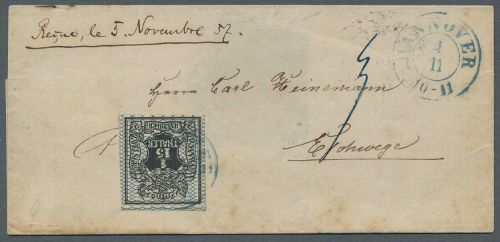 Reçue, le 5 Novembre 57.
HANNOVER
4
11
10-11
Herrn Carl Heinemann
Eschwege
1
15
THALER